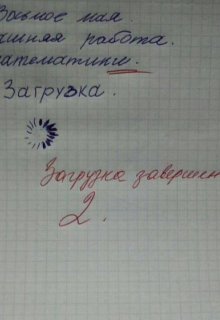 Восьмое мая.
ашняя работа.
математике.
Загрузка.
Загрузка завершен
2.